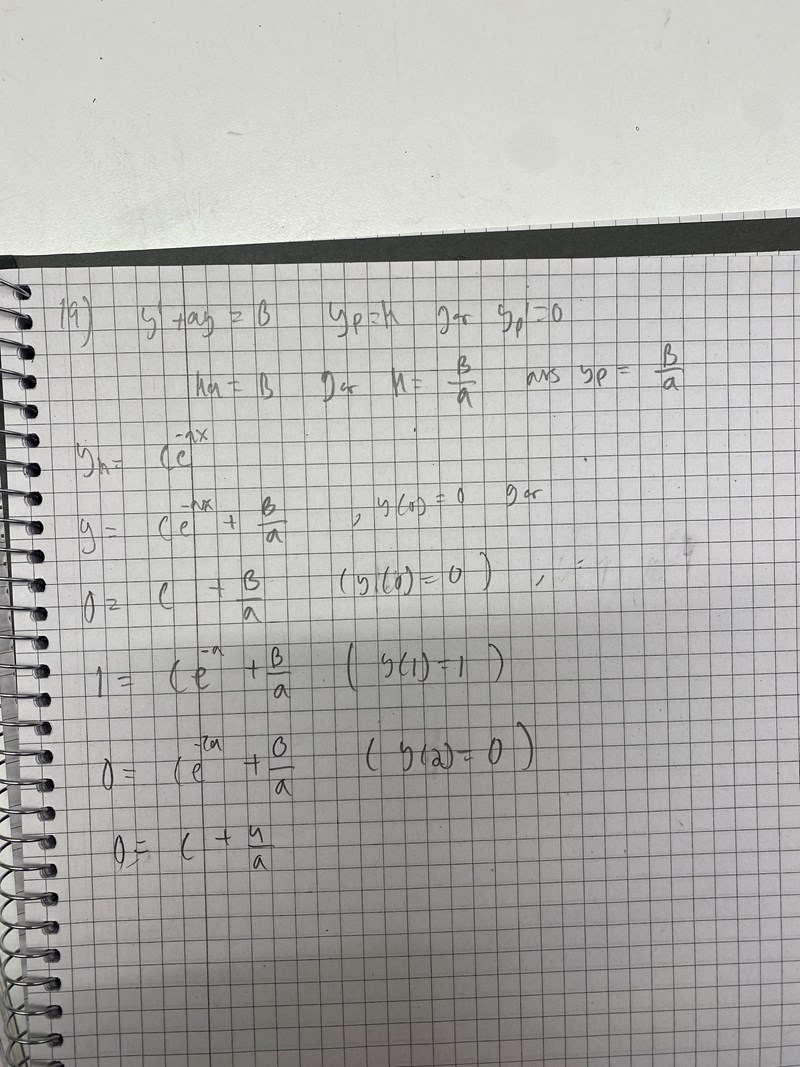 19) y' + ay = B yp = k ger yp' = 0
ka = B ger k = B/a ans yp = B/a
yh = Ce^-ax
y = Ce^-ax + B/a , y(0) = 0 ger
0 = C + B/a (y(0) = 0) ,
1 = Ce^-a + B/a (y(1) = 1)
0 = Ce^-2a + B/a (y(2) = 0)
0 = C + 4/a